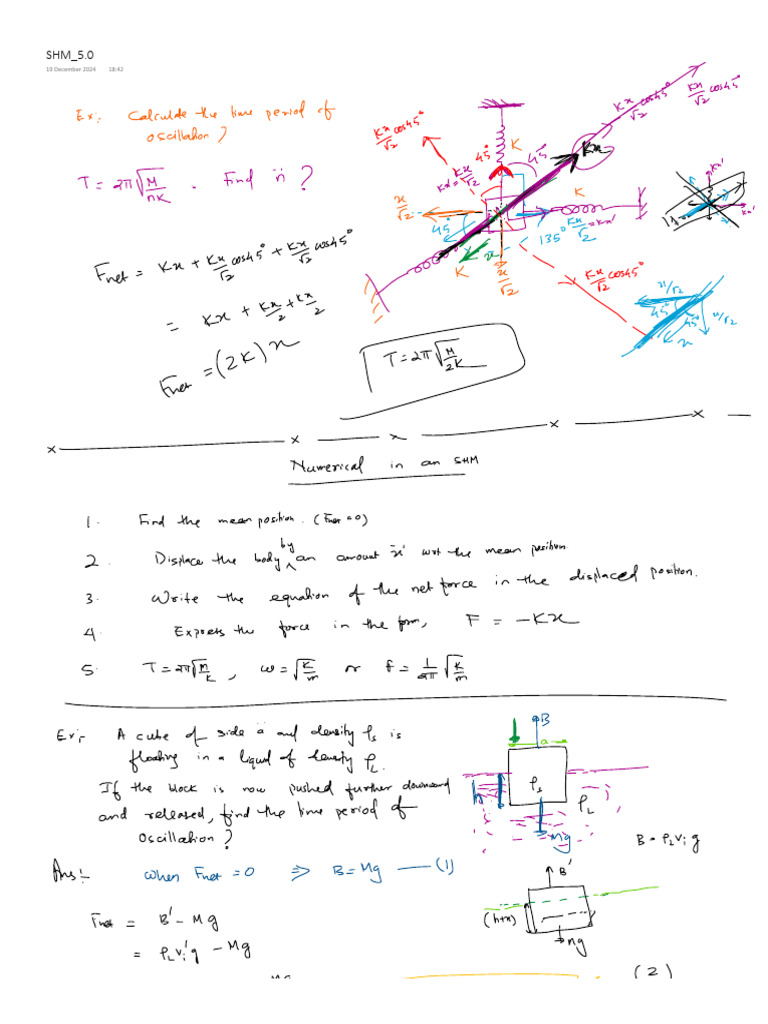 SHM_5.0
10 December 2024 18:42
Ex: Calculate the time period of
oscillation?
T = 2π√(M/nK) . Find n?
Fnet = Kx + Kx/√2 cos45° + Kx/√2 cos45°
= Kx + Kx/2 + Kx/2
Fnet = (2K)x
T = 2π√(M/2K)
Kx/√2 cos45°
Kx/√2 cos45°
Kx/√2 cos45°
K
45°
45°
Kx
Kx' = Kx/√2
K
x/√2
45°
135°
Kx/√2 = Kx'
K
x
x/√2
Kx/√2 cos45°
Kx'
Kx'
x/√2
45°
45°
x/√2
x
Numerical in an SHM
1. Find the mean position. (Fnet = 0)
2. Displace the body by an amount 'x' wrt the mean position.
3. Write the equation of the net force in the displaced position.
4. Express the force in the form, F = -Kx
5. T = 2π√(M/K) , ω = √(K/m) or f = 1/2π √(K/m)
Ex:- A cube of side 'a' and density ρs is
floating in a liquid of density ρL.
If the block is now pushed further downward
and released, find the time period of
oscillation?
B
a
h
ρs
ρL
Mg
B = ρL Vi g
Ans:- When Fnet = 0 ⇒ B = Mg —— (1)
Fnet = B' - Mg
= ρL Vi' g - Mg
B'
(h+x)
Mg
(2)